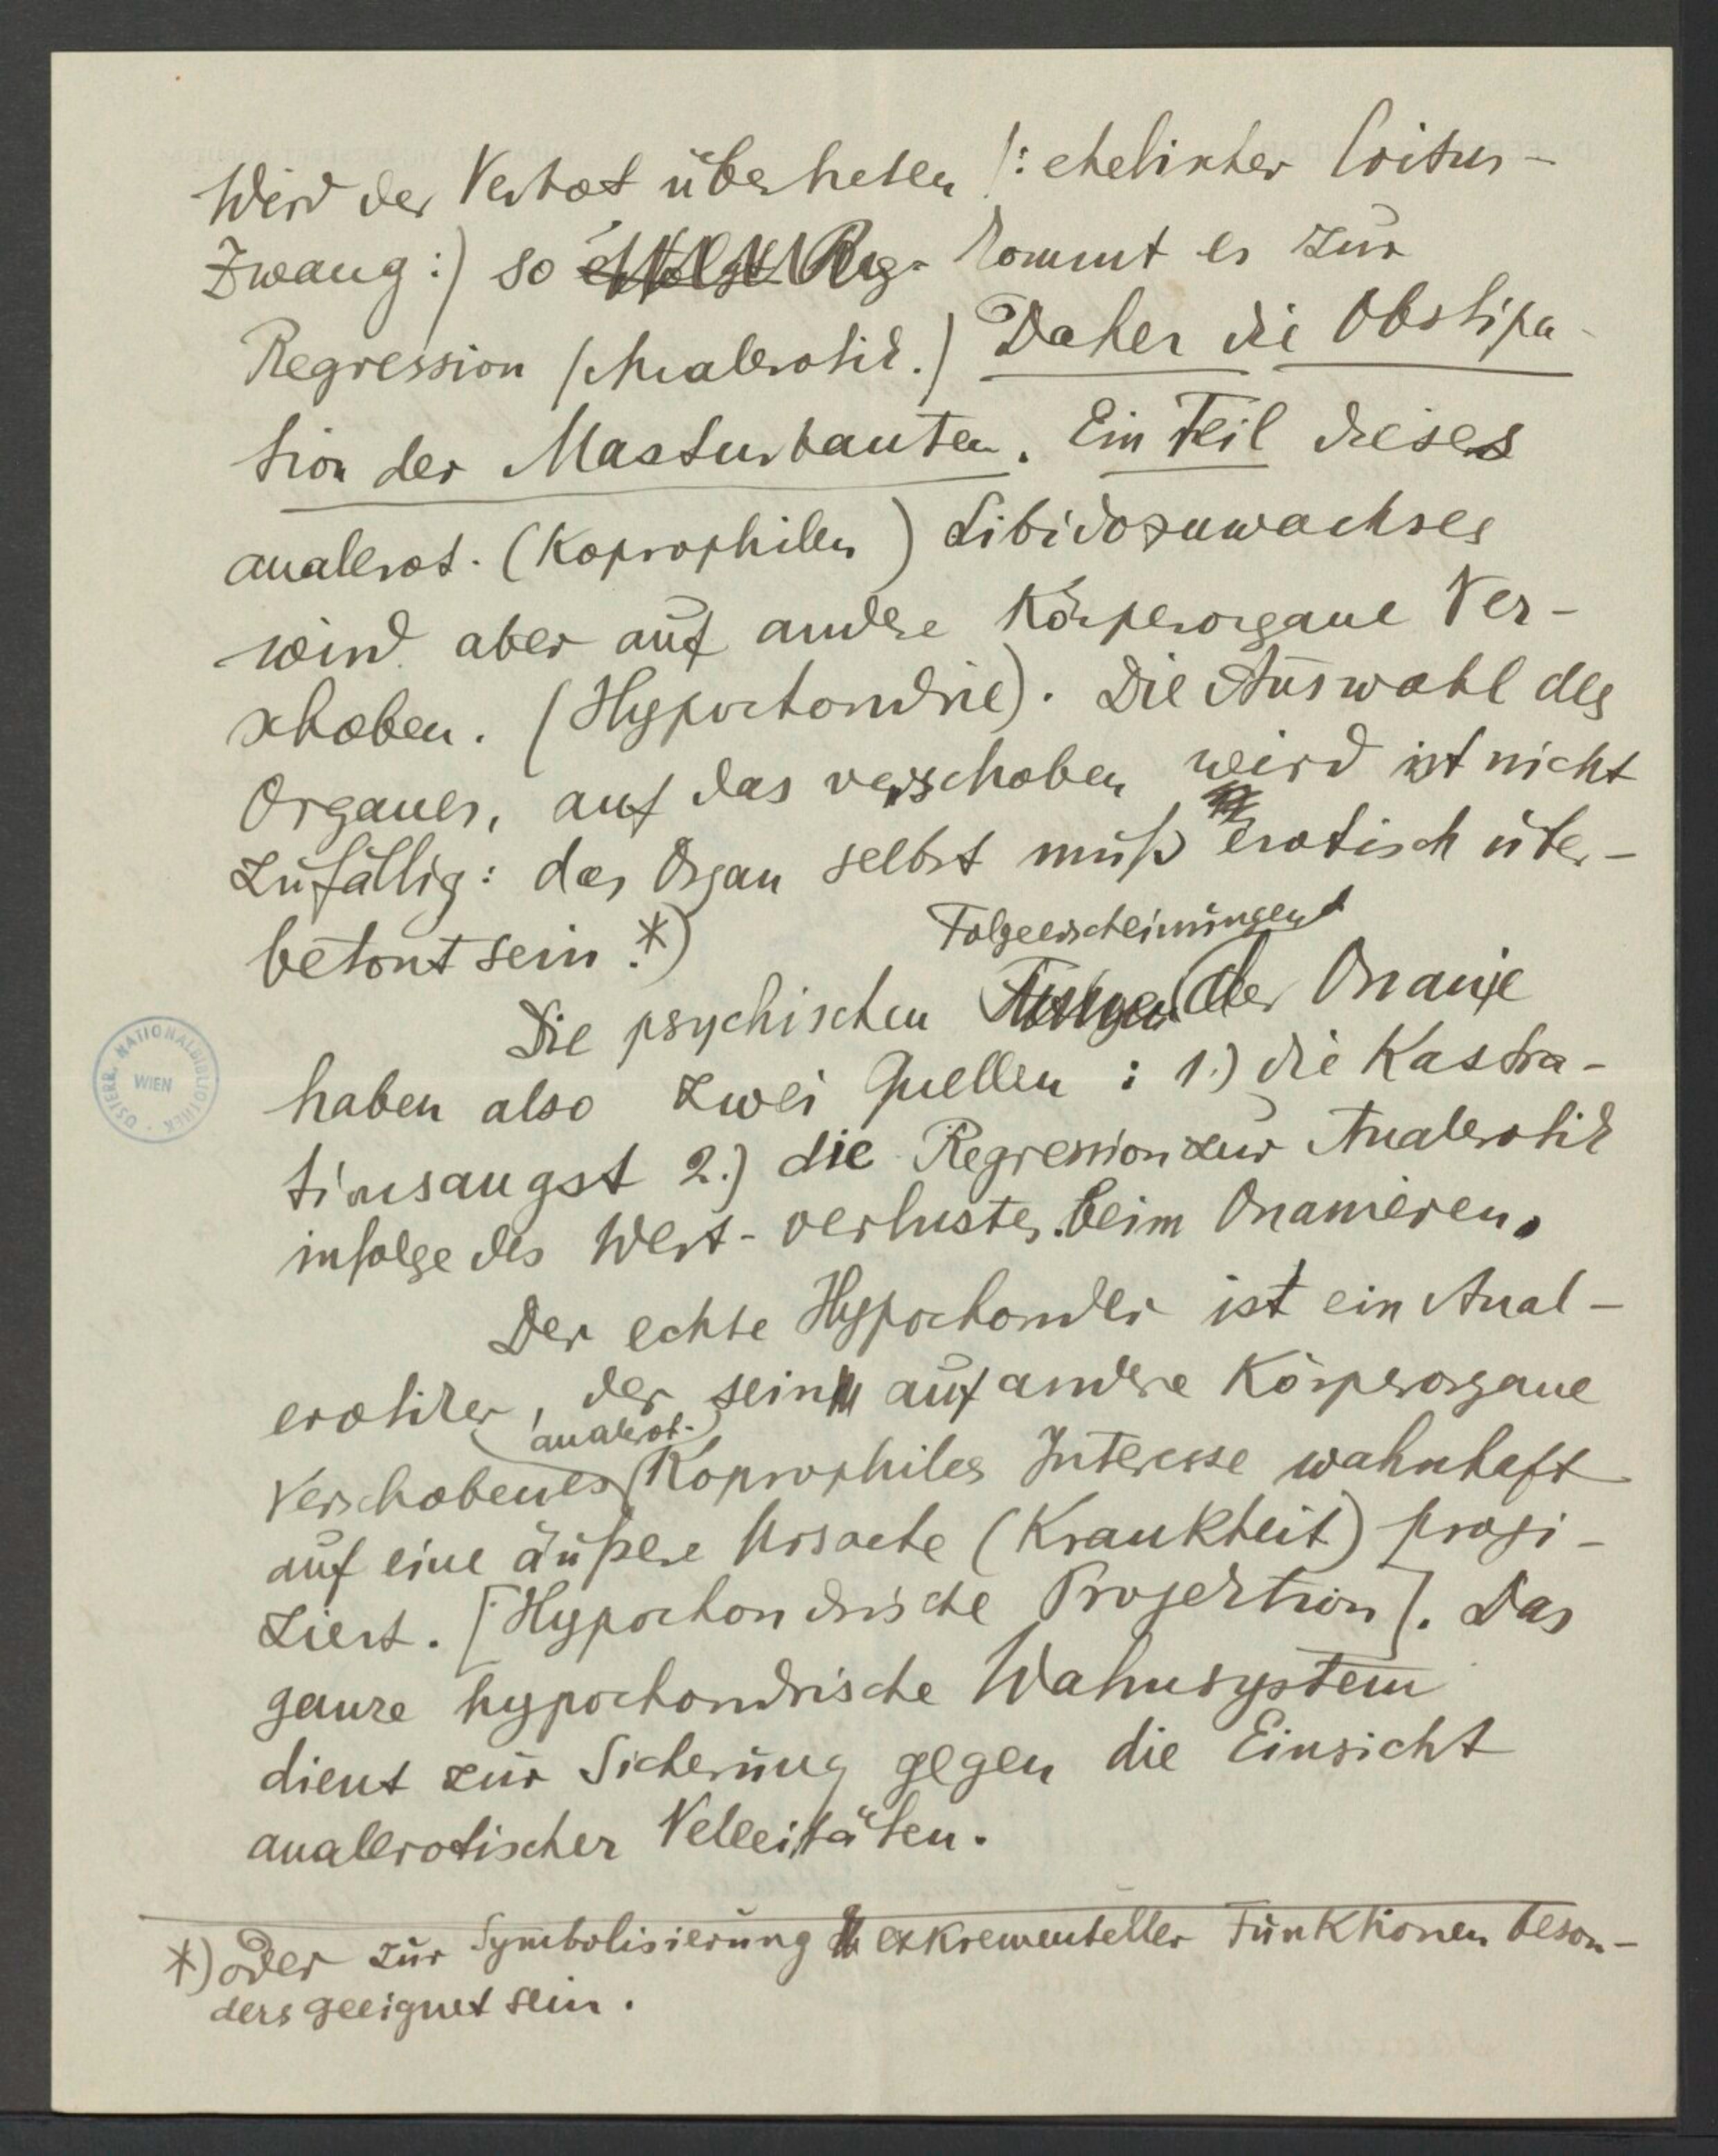 Wird das Verbot übertreten /: ehelicher Coitus-
Zwang :) so erfolgt Reg- kommt es zur
Regression (Analerotik.) Daher die Obstipa-
tion der Masturbanten. Ein Teil dieses
analerot. (Koprophilen) Libidozuwachses
wird aber auf andere Körperorgane Ver-
schoben. (Hypochondrie). Die Auswahl des
Organes, auf das verschoben wird ist nicht
Zufällig: das Organ selbst muß erotisch über-
betont sein.*)
Folgeerscheinungen
Die psychischen Folgen der Onanie
haben also zwei Quellen : 1.) die Kastra-
tionsangst 2.) die Regression zur Analerotik
infolge des Wert-verlustes beim Onanieren.
Der echte Hypochonder ist ein Anal-
erotiker, der sein auf andere Körperorgane
analerot.-
Verschobenes Koprophiles Interesse wahnhaft
auf eine äußere Ursache (Krankheit) proji-
ziert. [Hypochondrische Projektion]. Das
ganze hypochondrische Wahnsystem
dient zur Sicherung gegen die Einsicht
analerotischer Velleitäten.
*) oder zur Symbolisierung exkrementeller Funktionen beson-
ders geeignet sein.
ÖSTERR. NATIONALBIBLIOTHEK
WIEN